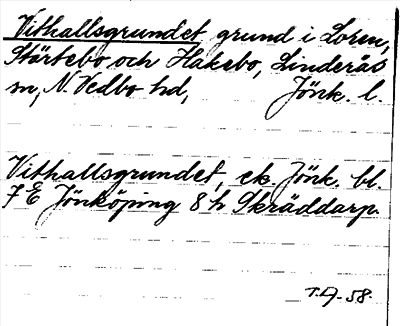 Vithallsgrundet, grund i Loren,
Störtebo och Hakebo, Linderås
sn, N. Vedbo hd, Jönk. l.
Vithallsgrundet, ek. Jönk. bl.
7 E Jönköping 8 h Skräddarp.
T.A. -58.